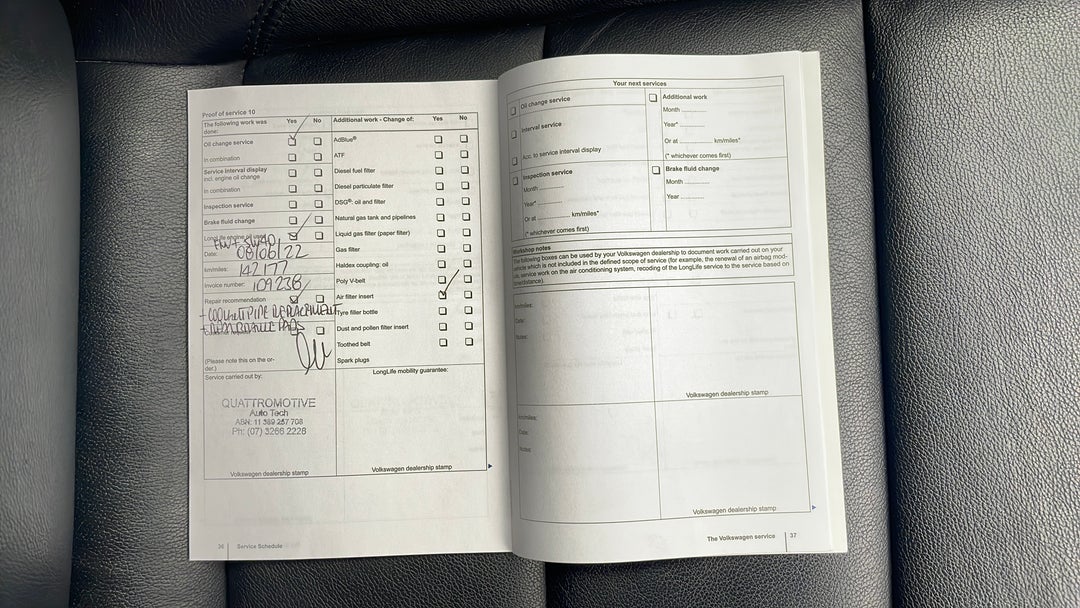 Proof of service 10
The following work was done: Yes No
Oil change service
In combination
Service interval display incl. engine oil change
In combination
Inspection service
Brake fluid change
LongLife engine oil used
5W40
Date: 08/06/22
km/miles: 142 177
Invoice number: 109 238
Repair recommendation
+ COOLANT PIPE REPLACEMENT
+ REAR BRAKE PADS
(Please note this on the or-
der.)
Service carried out by:
QUATTROMOTIVE
Auto Tech
ABN: 11 389 257 708
Ph: (07) 3266 2228
Volkswagen dealership stamp
Additional work - Change of: Yes No
AdBlue®
ATF
Diesel fuel filter
Diesel particulate filter
DSG®: oil and filter
Natural gas tank and pipelines
Liquid gas filter (paper filter)
Gas filter
Haldex coupling: oil
Poly V-belt
Air filter insert
Tyre filler bottle
Dust and pollen filter insert
Toothed belt
Spark plugs
LongLife mobility guarantee:
Volkswagen dealership stamp
36 Service Schedule
Your next services
Oil change service
Interval service
Acc. to service interval display
Inspection service
Month ............
Year* ............
Or at ............ km/miles*
(* whichever comes first)
Additional work
Month ............
Year* ............
Or at ............ km/miles*
(* whichever comes first)
Brake fluid change
Month ............
Year ............
Workshop notes
The following boxes can be used by your Volkswagen dealership to document work carried out on your
vehicle which is not included in the defined scope of service (for example, the renewal of an airbag mod-
ule, service work on the air conditioning system, recoding of the LongLife service to the service based on
time/distance).
km/miles:
Date:
Notes:
Volkswagen dealership stamp
km/miles:
Date:
Notes:
Volkswagen dealership stamp
The Volkswagen service 37